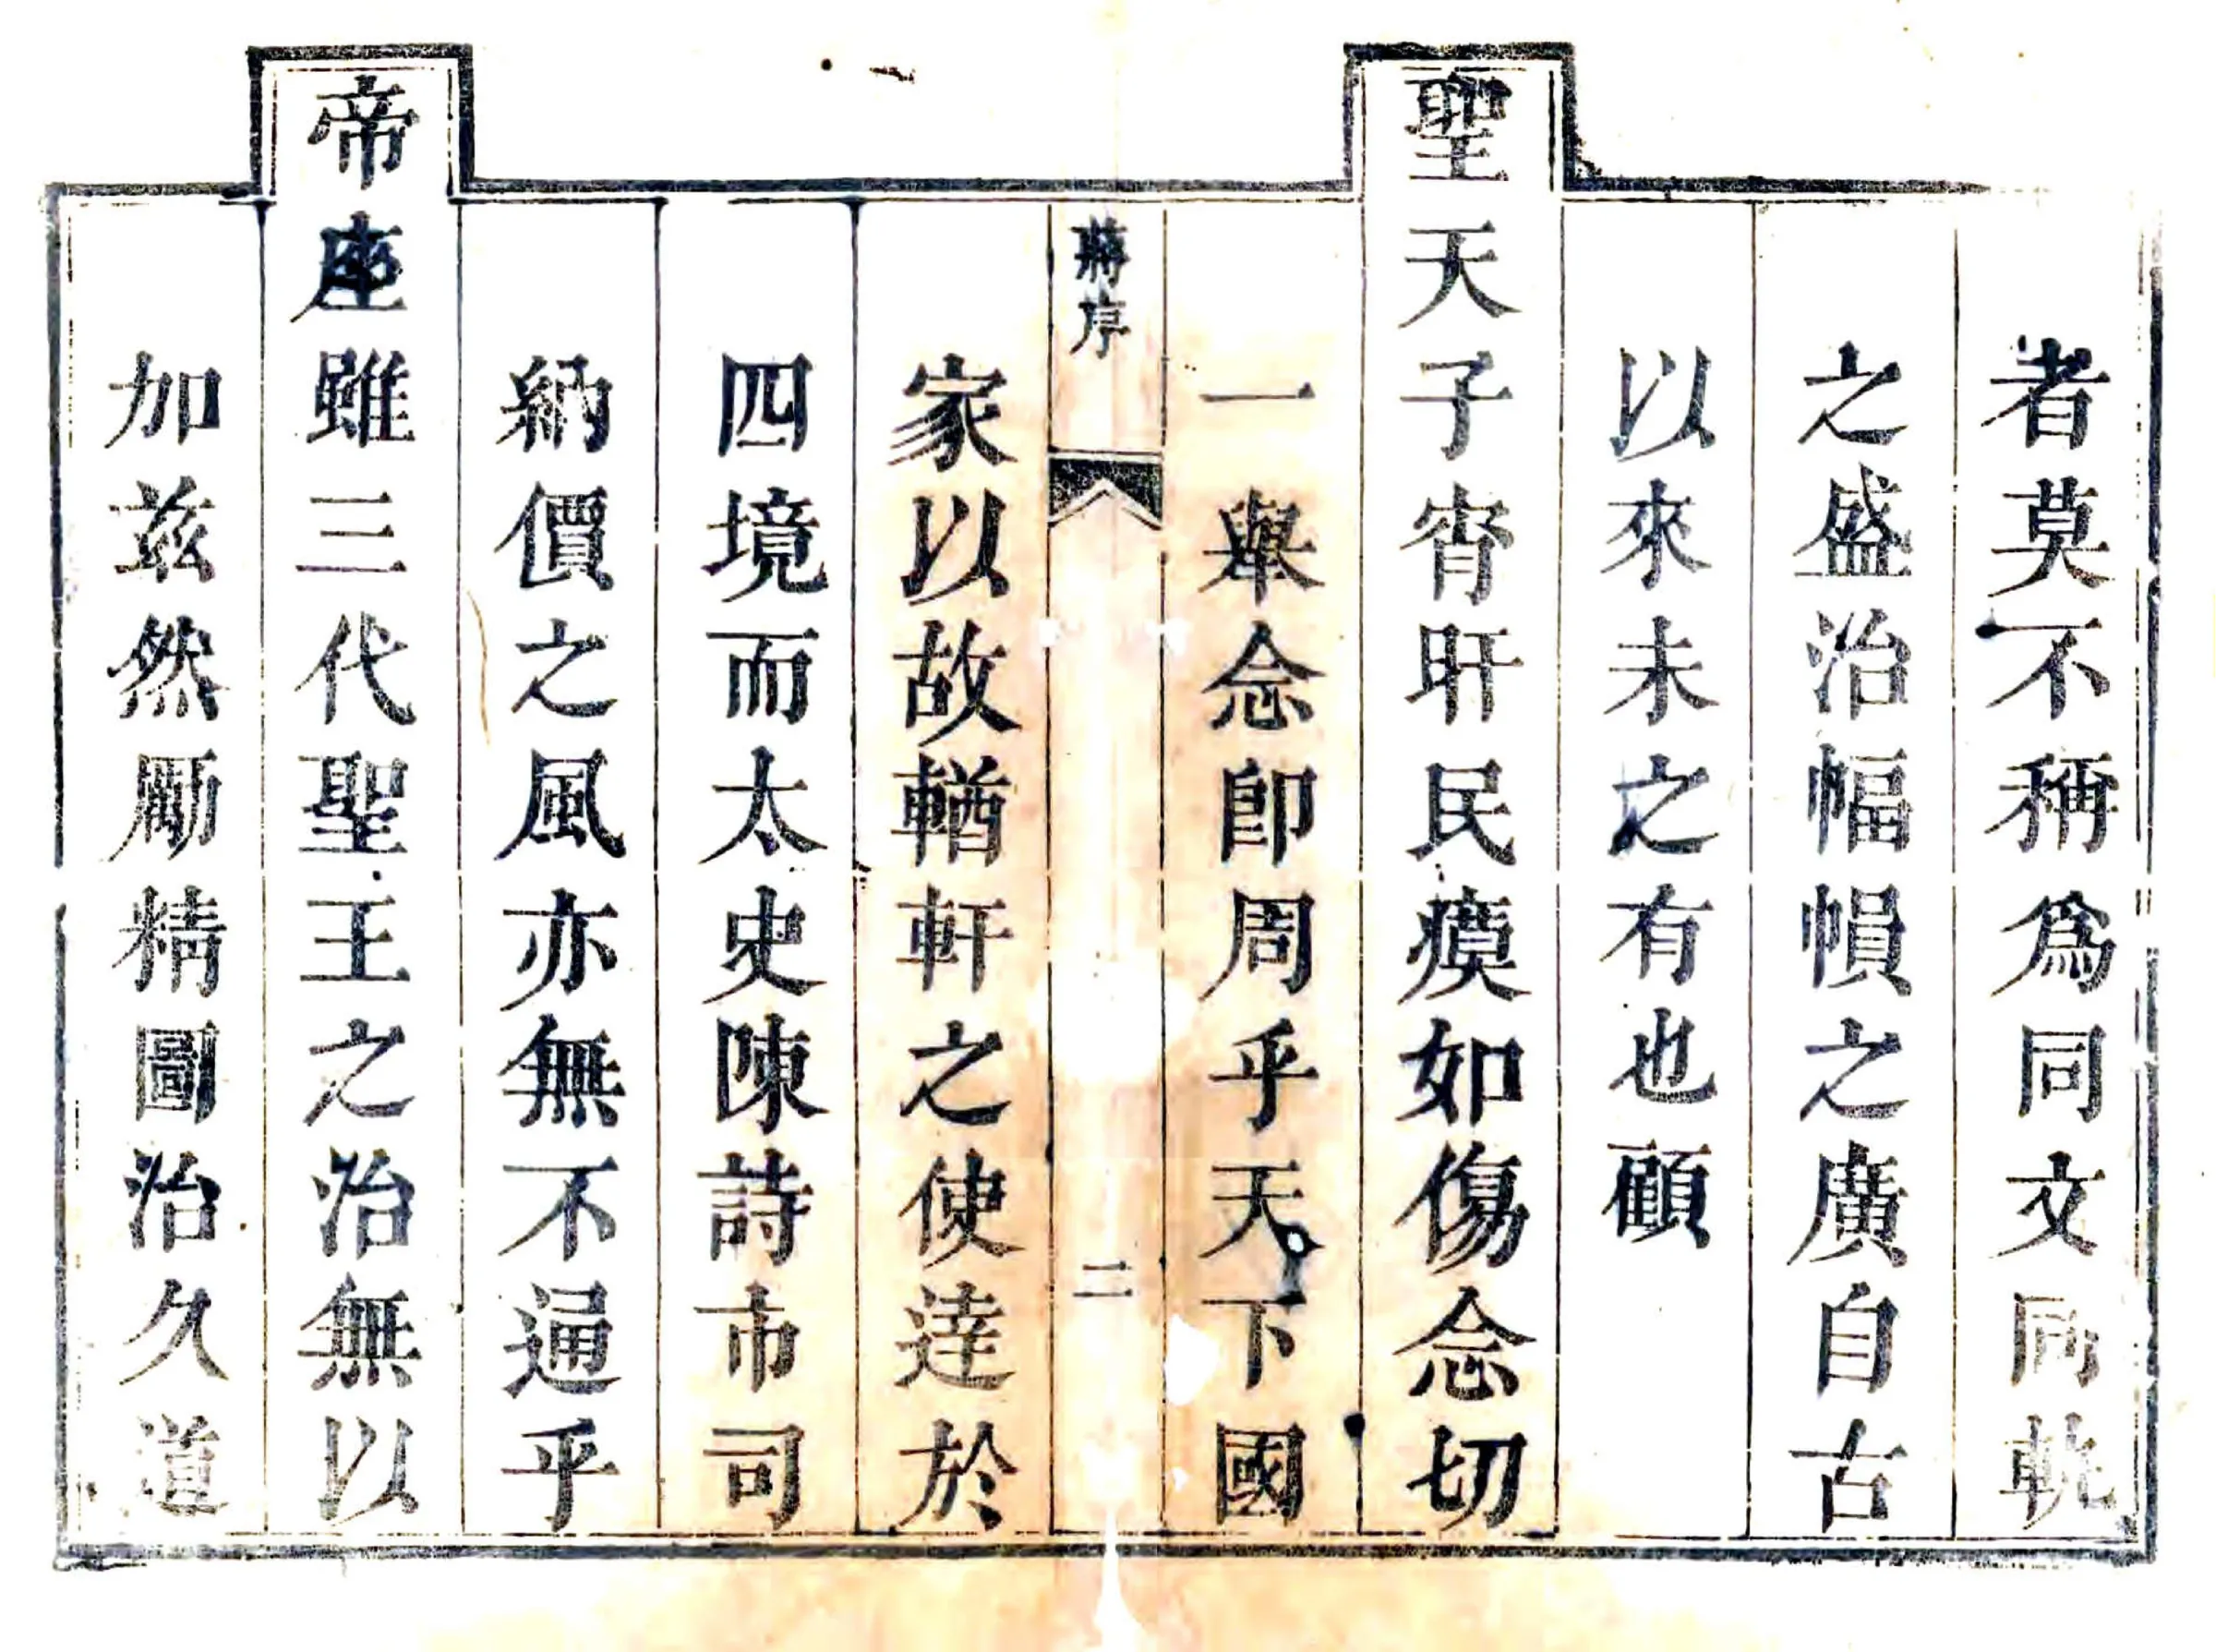 者莫不稱爲同文同軌
之盛治幅幀之廣自古
以來未之有也顧
聖天子宵旰民瘼如傷念切
一舉念卽周乎天下國
蔣序
二
家以故輶軒之使達於
四境而太史陳詩市司
納價之風亦無不通乎
帝座雖三代聖王之治無以
加兹然勵精圖治久道